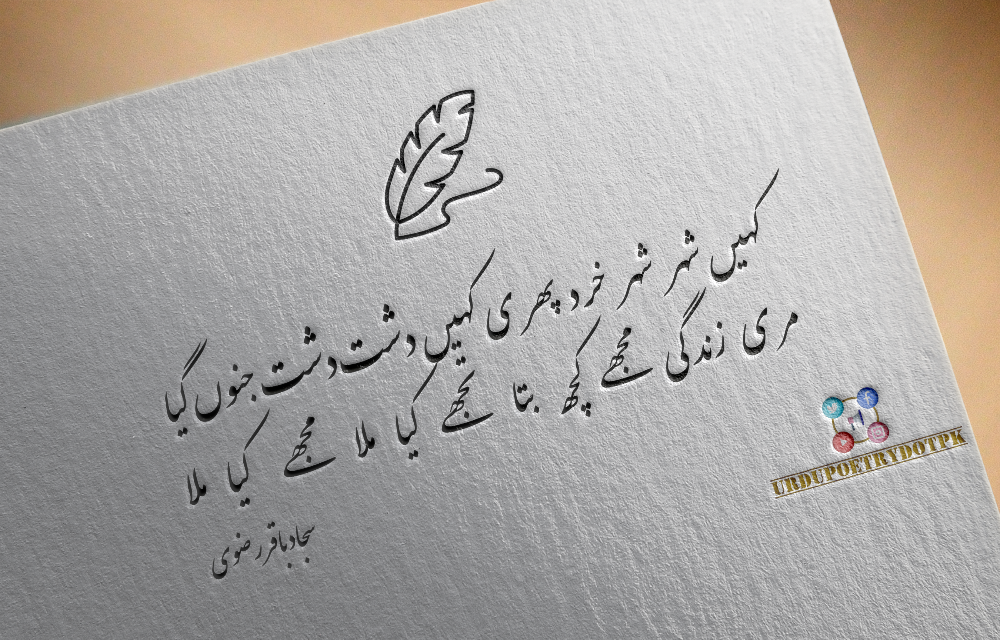 کہیں شہر شہر خرد پھری کہیں دشت دشت جنوں گیا
مری زندگی مجھے کچھ بتا تجھے کیا ملا مجھے کیا ملا
سجاد باقر رضوی
URDUPOETRYDOTPK